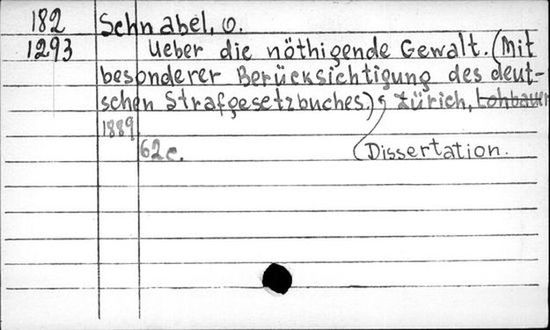 182 Schnabel, O.
1293 Ueber die nöthigende Gewalt. (Mit
besonderer Berücksichtigung des deut-
schen Strafgesetzbuches.) Zürich, Lohbauer
1889
62 c. (Dissertation.